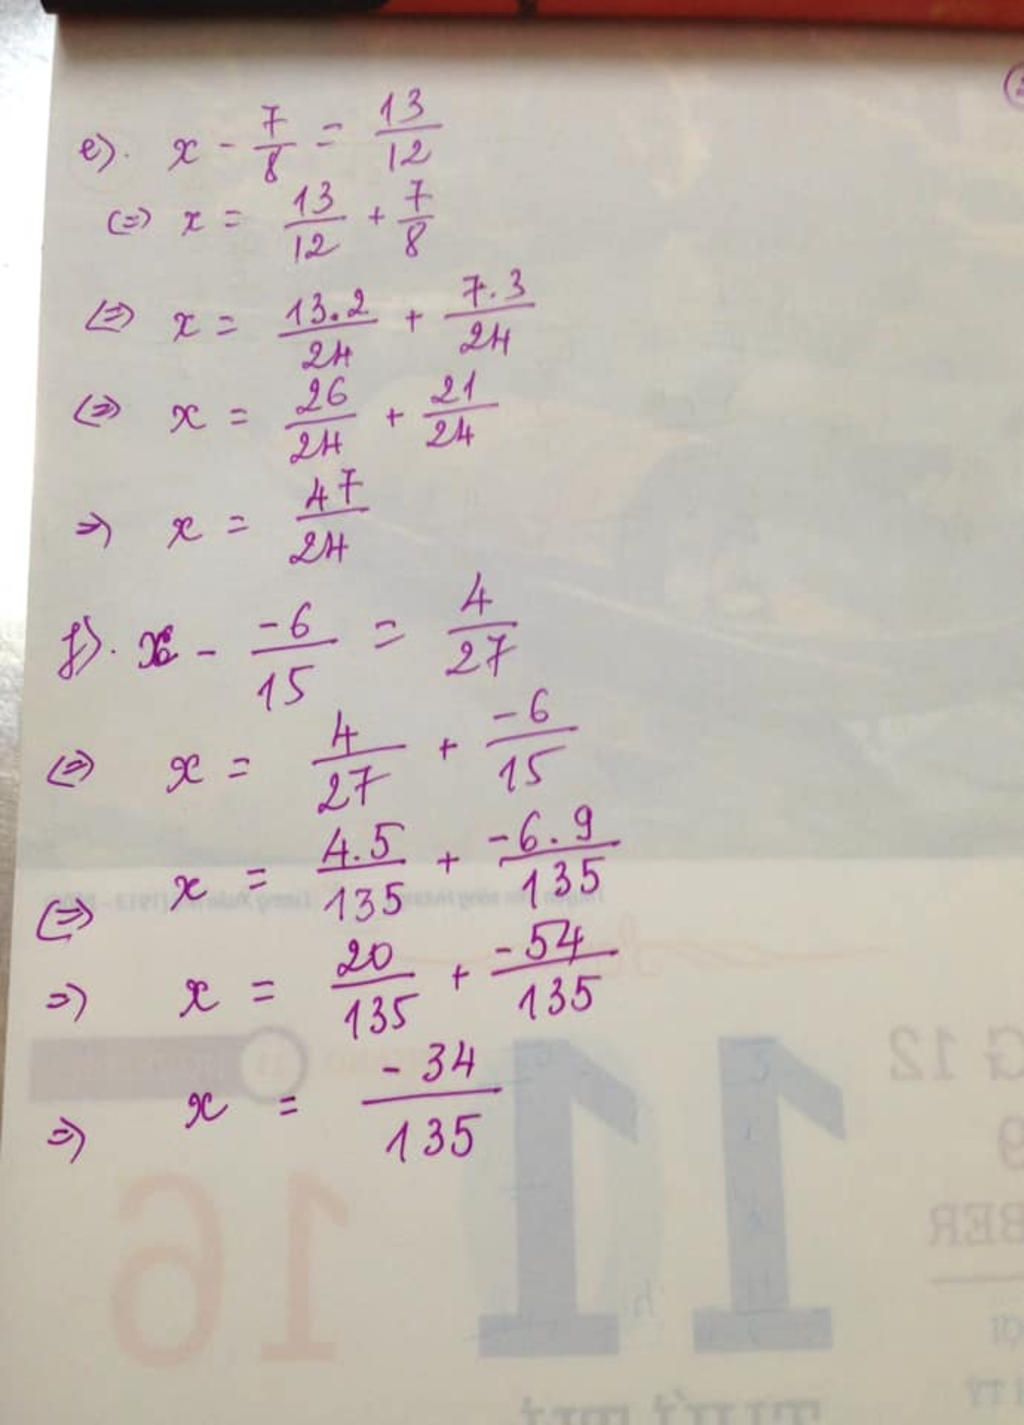 e). x - 7/8 = 13/12
(=) x = 13/12 + 7/8
(=) x = 13.2/24 + 7.3/24
(=) x = 26/24 + 21/24
=) x = 47/24
f). x - -6/15 = 4/27
(=) x = 4/27 + -6/15
(=) x = 4.5/135 + -6.9/135
=) x = 20/135 + -54/135
=) x = -34/135
G 12
9
BER
11
16